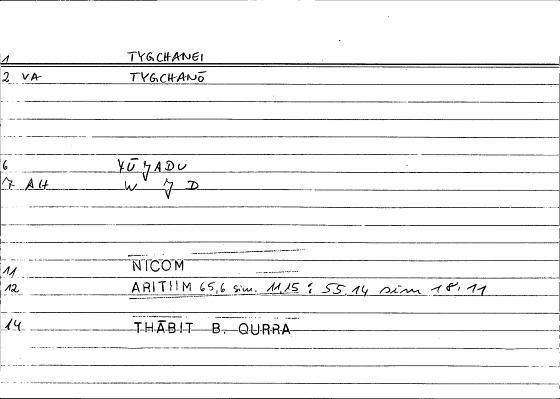 1 TYGCHANEI
2 VA TYGCHANŌ
6 ADU
7 AH W D
11 NICOM
12 ARITIIM 65,6 sim. 11,15 : 55,14 sim 18,11
14 THĀBIT B. QURRA